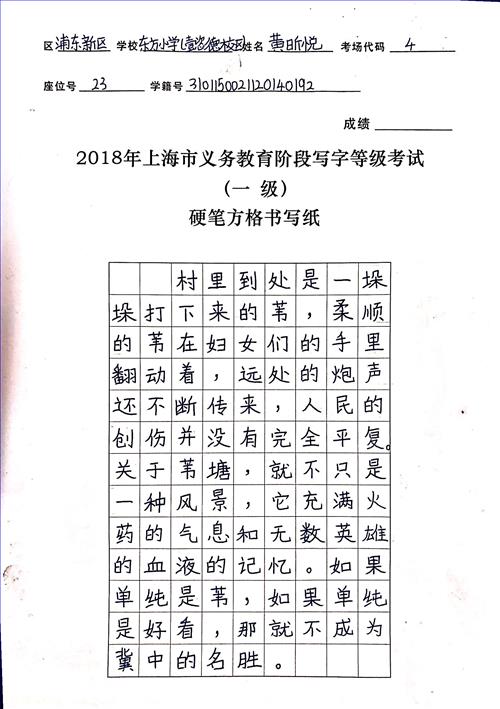 区 浦东新区 学校 东方小学(壹咨德校区) 姓名 黄昕悦 考场代码 4
座位号 23 学籍号 3101150021120140192
成绩
2018年上海市义务教育阶段写字等级考试
(一 级)
硬笔方格书写纸
村里到处是一垛
垛打下来的苇，柔顺
的苇在妇女们的手里
翻动着，远处的炮声
还不断传来，人民的
创伤并没有完全平复。
关于苇塘，就不只是
一种风景，它充满火
药的气息和无数英雄
的血液的记忆。如果
单纯是苇，如果单纯
是好看，那就不成为
冀中的名胜。